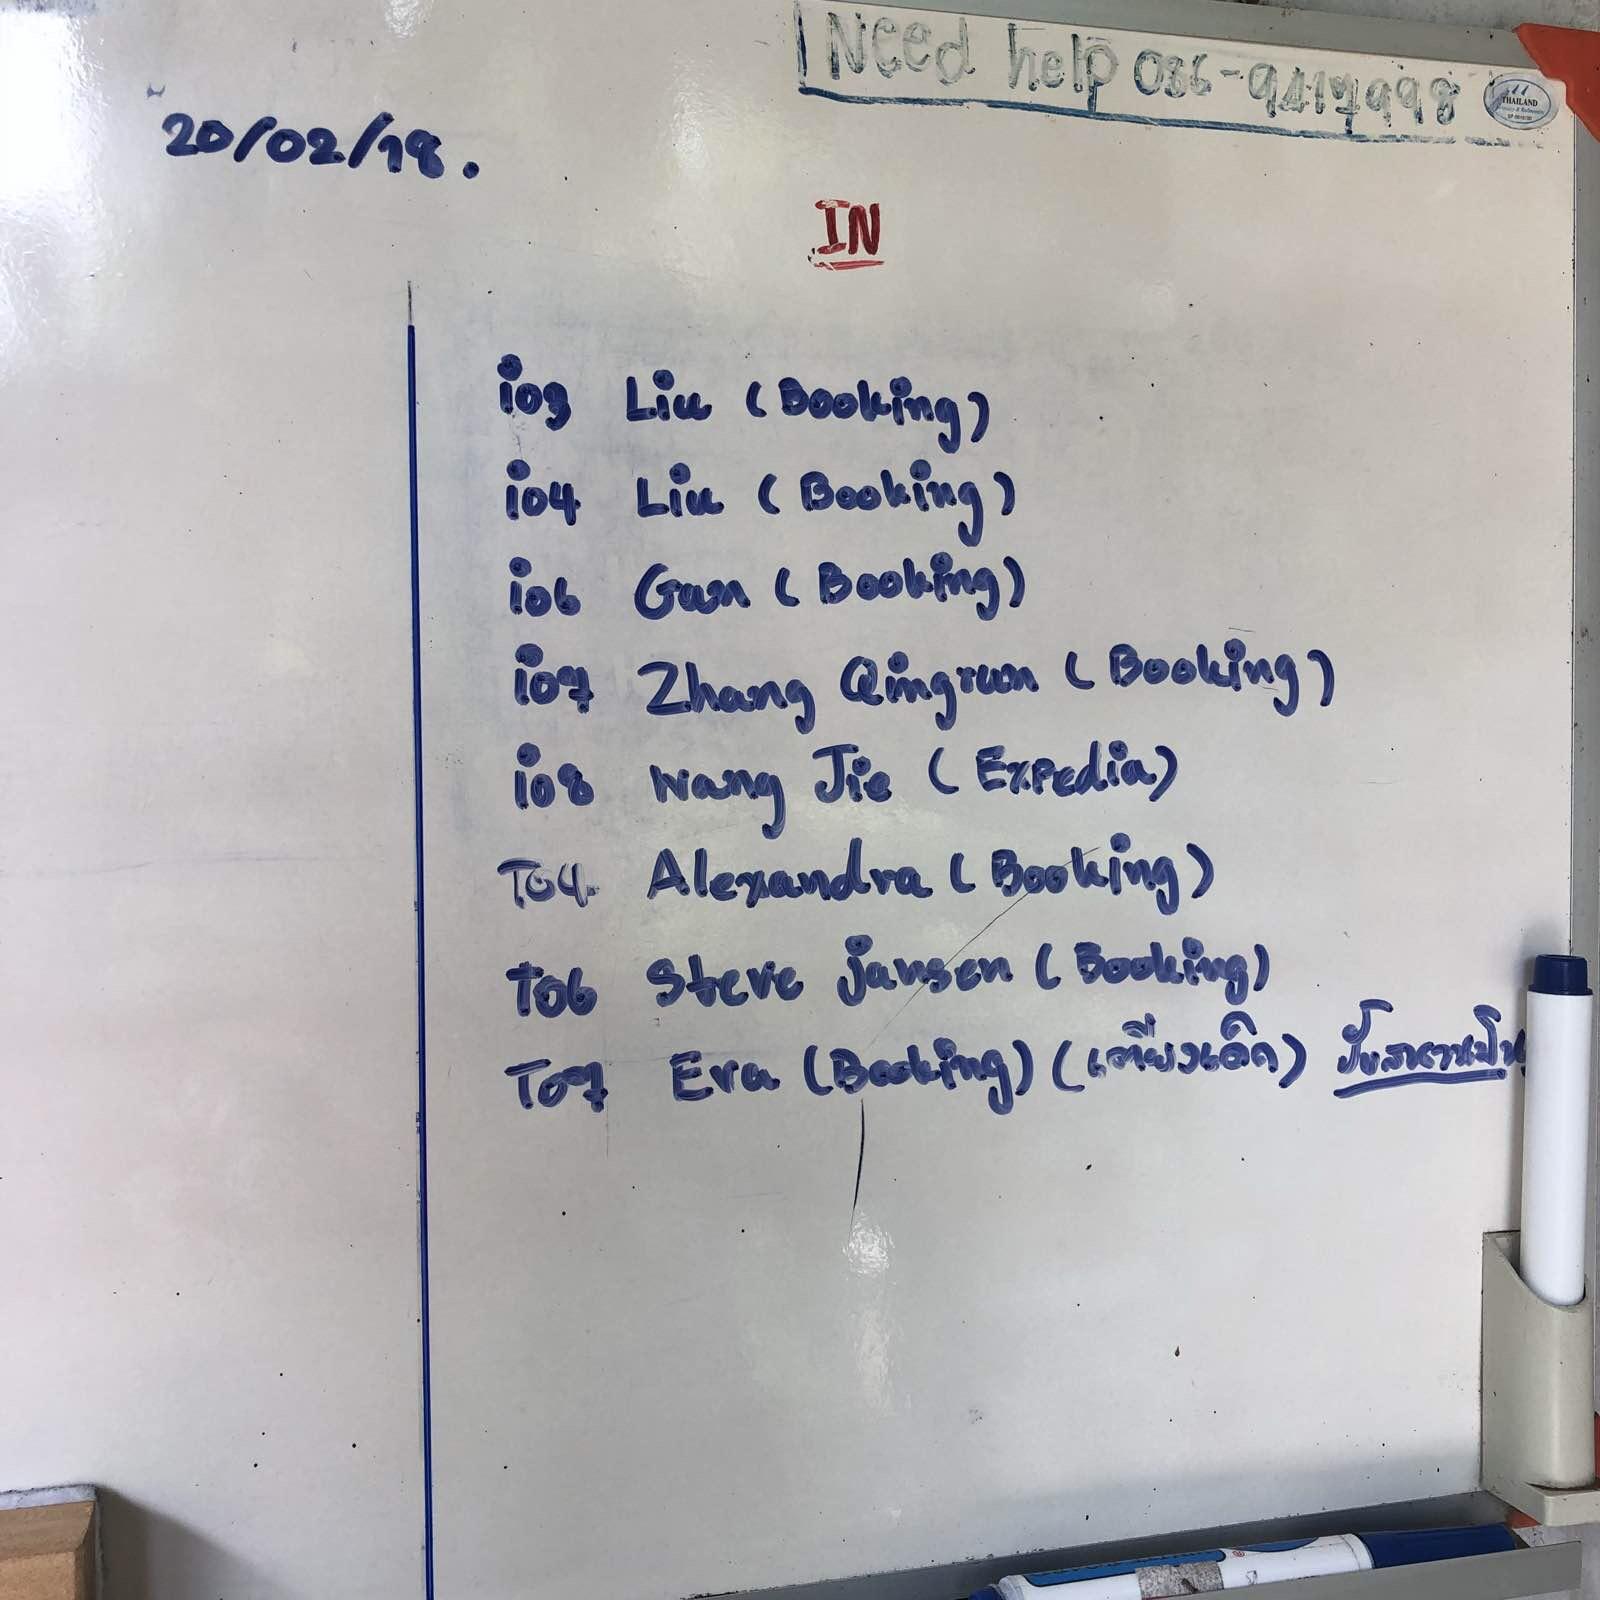 Need help 086-9417998
THAILAND
20/02/18.
IN
i03 Liu (Booking)
i04 Liu (Booking)
i06 Gan (Booking)
i07 Zhang Qingrun (Booking)
i08 Wang Jie (Expedia)
T04 Alexandra (Booking)
T06 Steve jansen (Booking)
T07 Eva (Booking) (เตียงเด็ก)